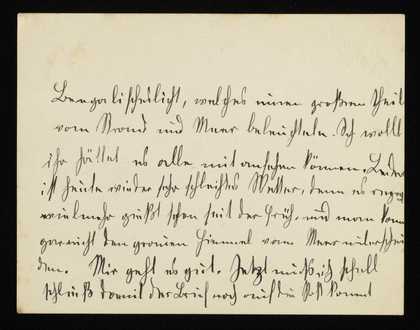 Bengalischeslicht, welches einen großen Theil
vom Strand und Meer beleuchtete. Ich wollt
ihr hättet es alle mit ansehen können. Leider
ist heute wieder sehr schlechtes Wetter, denn es regnet
vielmehr gießt schon seit der früh, und man kann
gar nicht den grauen Himmel vom Meer unterschei
den. Mir geht es gut. Jetzt muß ich schnell
schließ damit der Brief noch auf die Post kommt